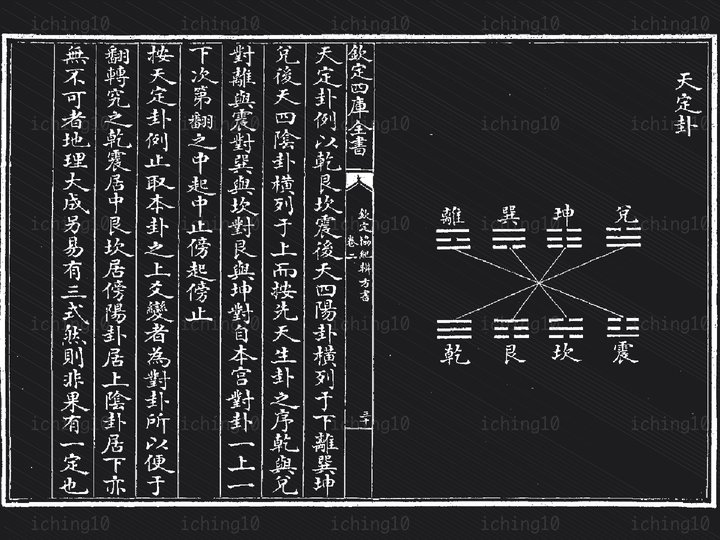 天定卦
離 巽 坤 兌
乾 艮 坎 震
欽定四庫全書
欽定協紀辨方書
卷二
三十
天定卦例以乾艮坎震後天四陽卦橫列于下離巽坤
兌後天四陰卦橫列于上而按先天生卦之序乾與兌
對離與震對巽與坎對艮與坤對自本宮對卦一上一
下次第翻之中起中止傍起傍止
按天定卦例止取本卦之上爻變者為對卦所以便于
翻轉究之乾震居中艮坎居傍陽卦居上陰卦居下亦
無不可者地理大成另易有三式然則非果有一定也
iching10